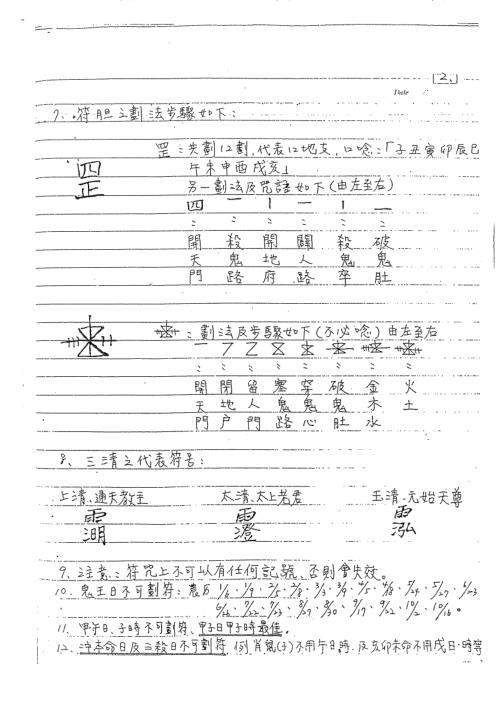 2、
Date
7、符胆之劃法步驟如下：
罡：共劃12劃，代表12地支，口唸：「子丑寅卯辰巳
午未申酉戌亥」
另一劃法及咒語如下(由左至右)
四 一 丨 一 丨 一
開 殺 開 關 殺 破
天 鬼 地 人 鬼 鬼
門 路 府 路 卒 肚
：劃法及步驟如下(不必唸)由左至右
開 閉 留 塞 穿 破 金 火
天 地 人 鬼 鬼 鬼 木 土
門 户 門 路 心 肚 水
8、三清之代表符号：
上清、通天教主 太清、太上老君 玉清、元始天尊
9、注意：符咒上不可以有任何記號、否則會失效。
10、鬼王日不可劃符：農历 1/6、1/9、2/5、2/8、3/3、3/9、4/5、4/8、5/4、5/27、6/23
6/26、7/22、7/23、8/27、8/30、9/17、9/22、10/2、10/16。
11、甲子日、子時不可劃符、甲子日甲子時最佳。
12、沖本命日及三殺日不可劃符、例肖鼠(子)不用午日時、及亥卯未命不用戌日、時等